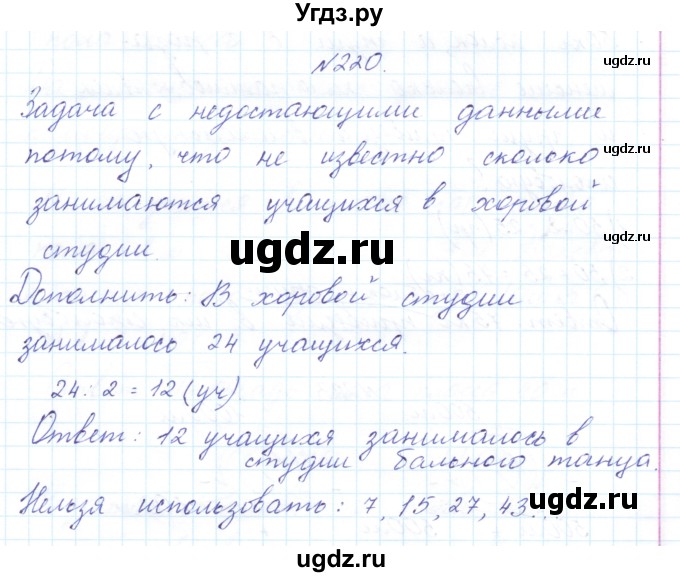 Угдз.ру
ugdz.ru
№220.
ugdz.ru
Задача с недостающими данными
потому, что не известно сколько
ugdz.ru
занимаются учащихся в хоровой
ugdz.ru
студии.
ugdz.ru
Дополнить: В хоровой студии
занималось 24 учащихся.
24 : 2 = 12 (уч).
Ответ: 12 учащихся занималось в
студии бального танца.
ugdz.ru
Нельзя использовать: 7, 15, 27, 43...
ugdz.ru
ugdz.ru